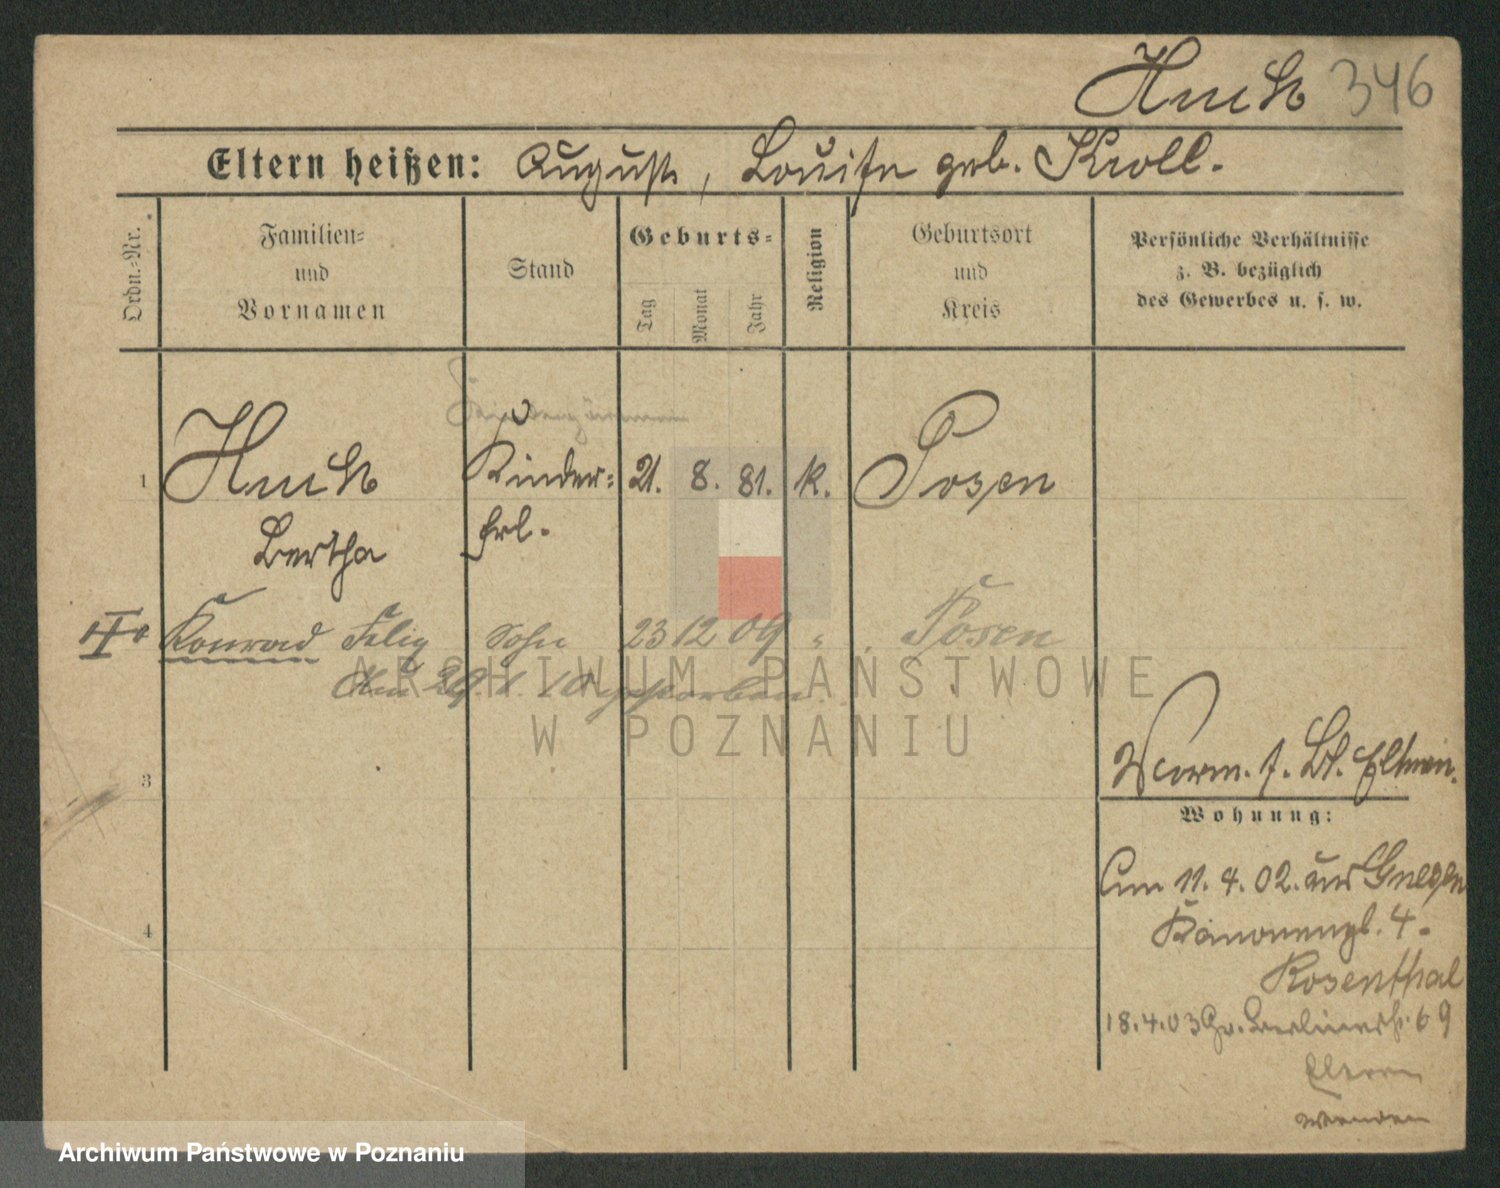 Huch 346
Eltern heißen: August, Louise geb. Kroll.
Ordn.-Nr.
Familien-
und
Vornamen
Stand
Geburts-
Tag
Monat
Jahr
Religion
Geburtsort
und
Kreis
Persönliche Verhältnisse
z. B. bezüglich
des Gewerbes u. s. w.
1 Huch Kinder- 21. 8. 81. k. Posen
Bertha Frl.
Konrad Felix Sohn 23 12 09 " Posen
Am 29. 1. 10 gestorben
ARCHIWUM PAŃSTWOWE
W POZNANIU
3
Worm. f. Bl. Eltern.
Wohnung:
4
Am 11. 4. 02. aus Gnesen
Kanonenpl. 4.
Rosenthal
18.4.03 Gr. Berlinerstr. 69
Eltern
wenden
Archiwum Państwowe w Poznaniu